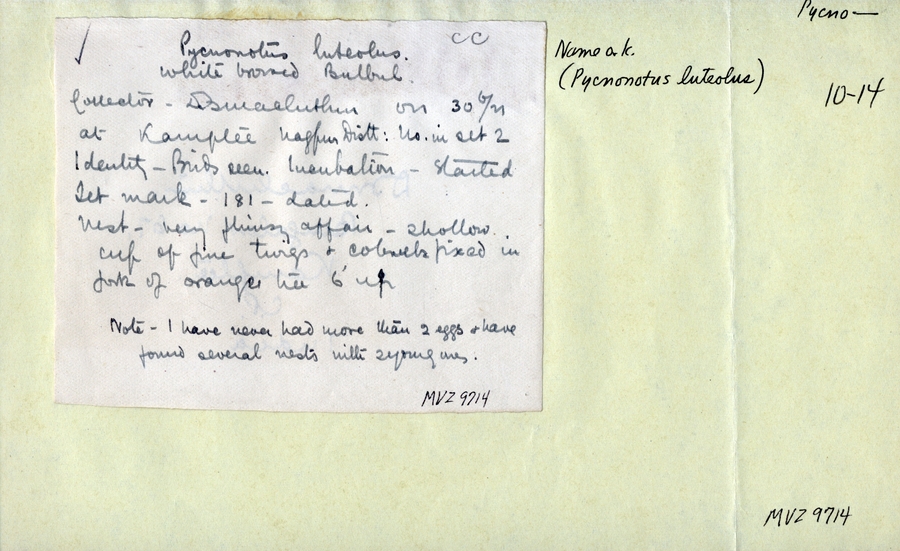 Pycnonotus luteolus.
CC
white browed Bulbul.
Collector - on 30/6/
at Kamptee Nagpur Distt: No. in set 2
Identity - Birds seen. Incubation - Started
Set mark - 181 - dated.
Nest - very flimsy affair - shallow
cup of fine twigs & cobwebs fixed in
fork of orange tree 6' up
Note - I have never had more than 2 eggs & have
found several nests with 2 young ones.
MVZ 9714
Name o.k.
(Pycnonotus luteolus)
Pycno—
10-14
MVZ 9714